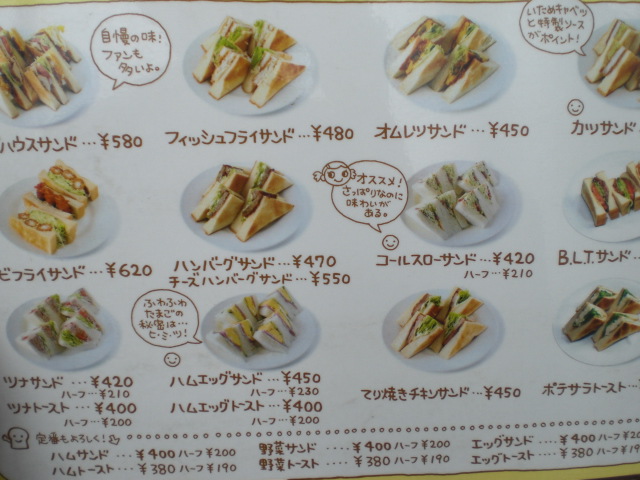 自慢の味!
ファンも
多いよ。
いためキャベツ
と特製ソース
がポイント!
ハウスサンド…¥580
フィッシュフライサンド…¥480
オムレツサンド…¥450
カツサンド
オススメ!
さっぱりなのに
味わいが
ある。
ビフライサンド…¥620
ハンバーグサンド…¥470
チーズハンバーグサンド…¥550
コールスローサンド…¥420
ハーフ…¥210
B.L.T.サンド…
ふわふわ
たまごの
秘密は…
ヒ・ミ・ツ!
ツナサンド…¥420
ハーフ…¥210
ツナトースト…¥400
ハーフ…¥200
ハムエッグサンド…¥450
ハーフ…¥230
ハムエッグトースト…¥400
ハーフ…¥200
てり焼きチキンサンド…¥450
ポテサラトースト…
定番もよろしく!
ハムサンド……¥400 ハーフ¥200
ハムトースト……¥380 ハーフ¥190
野菜サンド……¥400 ハーフ¥200
野菜トースト……¥380 ハーフ¥190
エッグサンド……¥400 ハーフ¥200
エッグトースト……¥380 ハーフ¥190